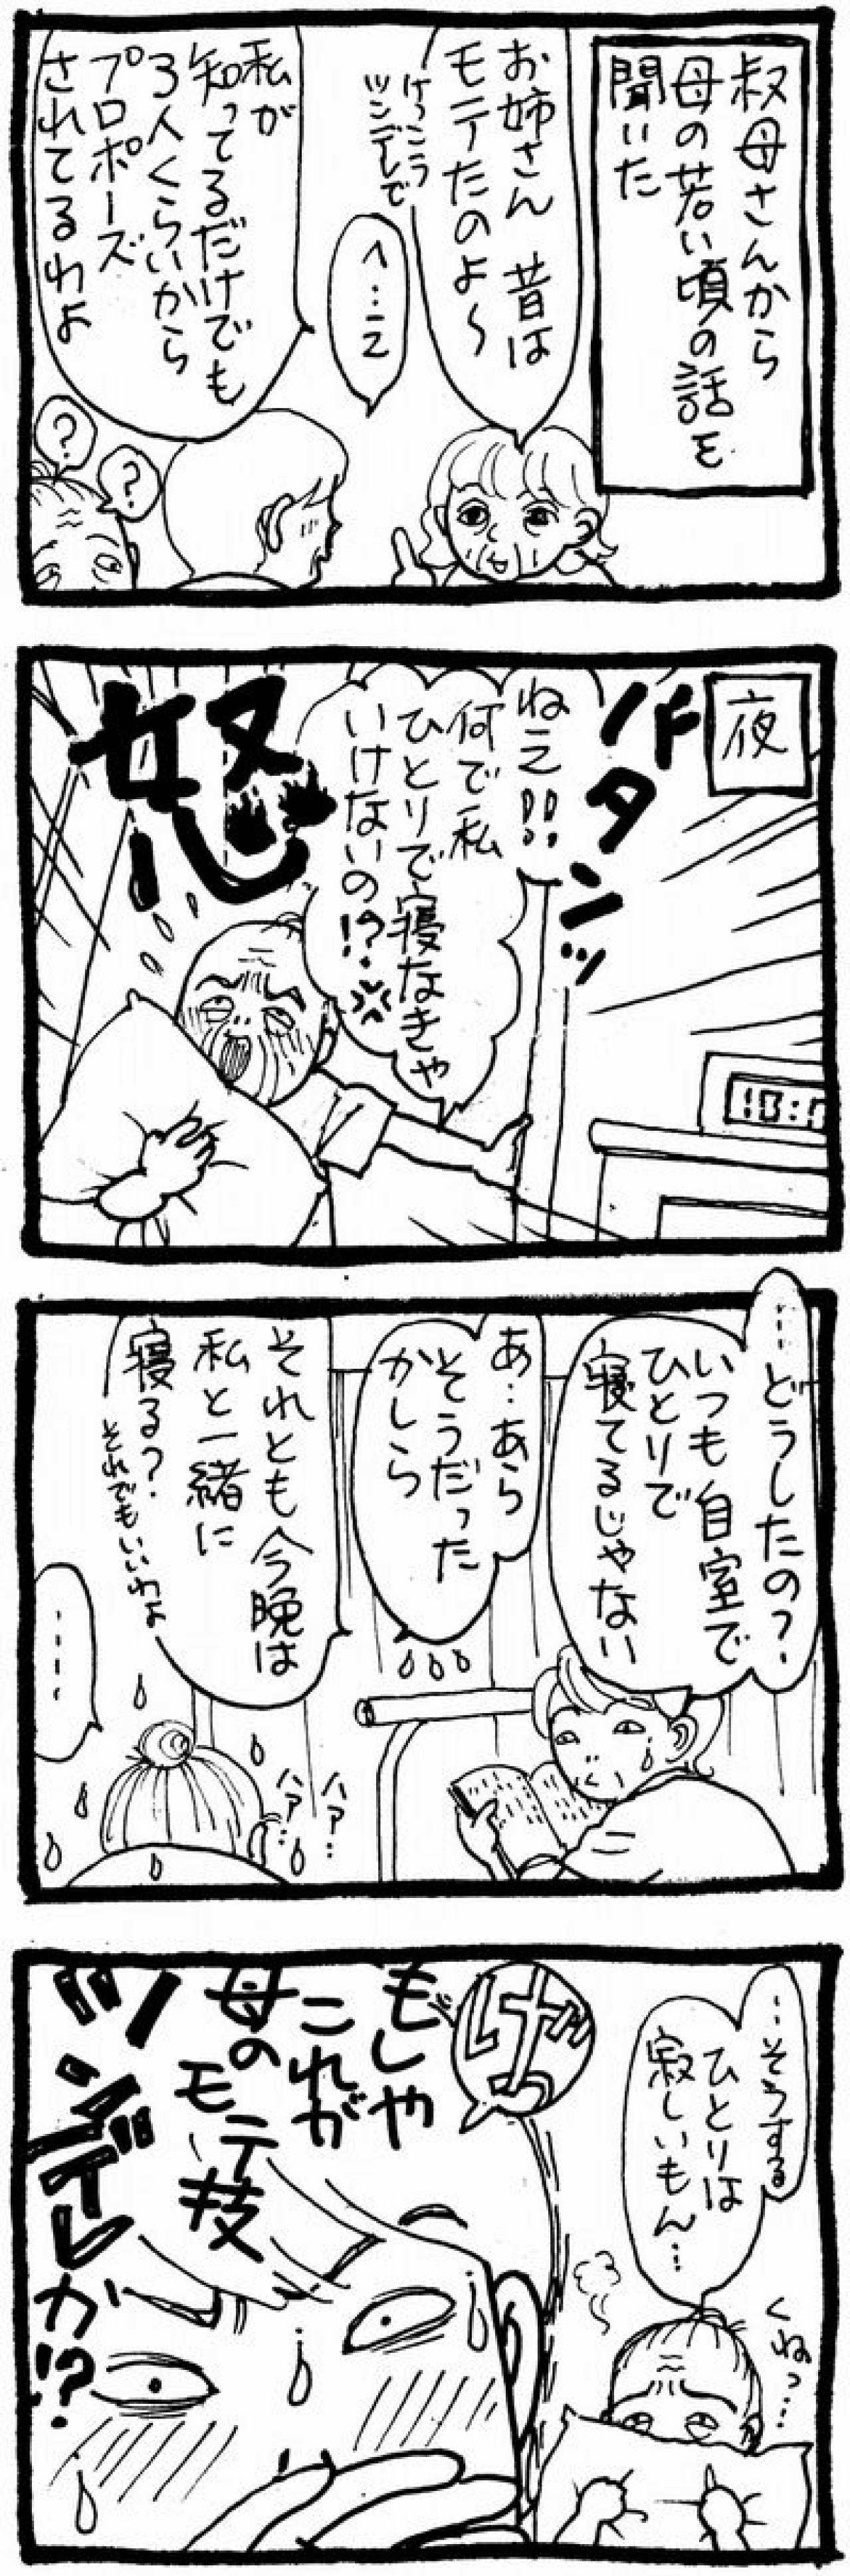 叔母さんから
母の若い頃の話を
聞いた
お姉さん 昔は
モテたのよ〜
けっこう
ツンデレで
へ…ェ
私が
知ってるだけでも
3人くらいから
プロポーズ
されてるわよ
?
?
夜
バタンッ
10:1
ねェ!!
何で私
ひとりで寝なきゃ
いけないの!?
怒
…どうしたの?
いつも自室で
ひとりで
寝てるじゃない
あ…あら
そうだった
かしら
それとも今晩は
私と一緒に
寝る?
それでもいいわよ
ハァ…
ハァ…
……
…そうする
ひとりは
寂しいもん…
くねっ…
げっ
もしや
これが
母の
モテ技
ツンデレか!?